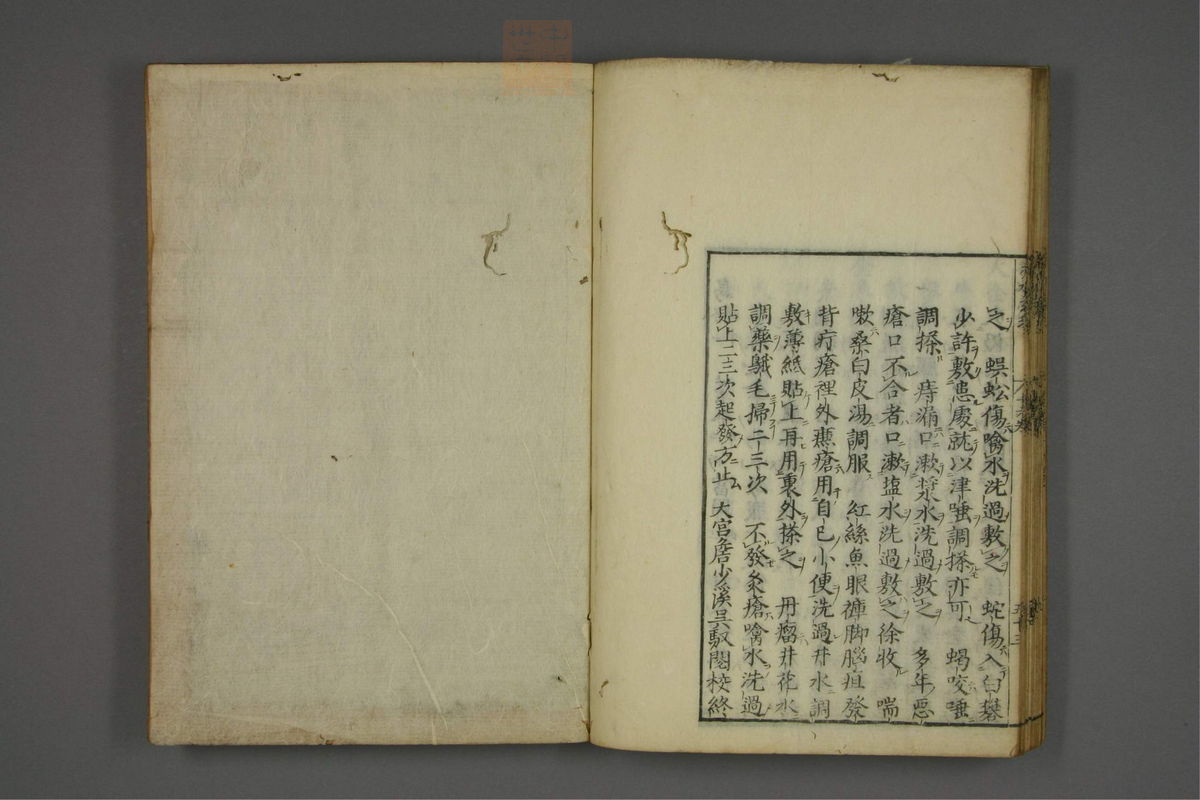 之 蜈蚣傷噙水洗過敷之 蛇傷入白礬
少許敷患處就以津唾調搽亦可 蝎咬唾
調搽 痔漏口漱漿水洗過敷之 多年惡
瘡口不合者口漱塩水洗過敷之徐收 喘
嗽桑白皮湯調服 紅絲魚眼褲脚腦疽發
背疔瘡裡外臁瘡用自己小便洗過井水調
敷薄紙貼上再用裏外搽之 丹瘤井花水
調藥鵝毛掃二三次 不發灸瘡噙水洗過
貼上二三次起發方止 大宮詹少溪吳馭閱校終